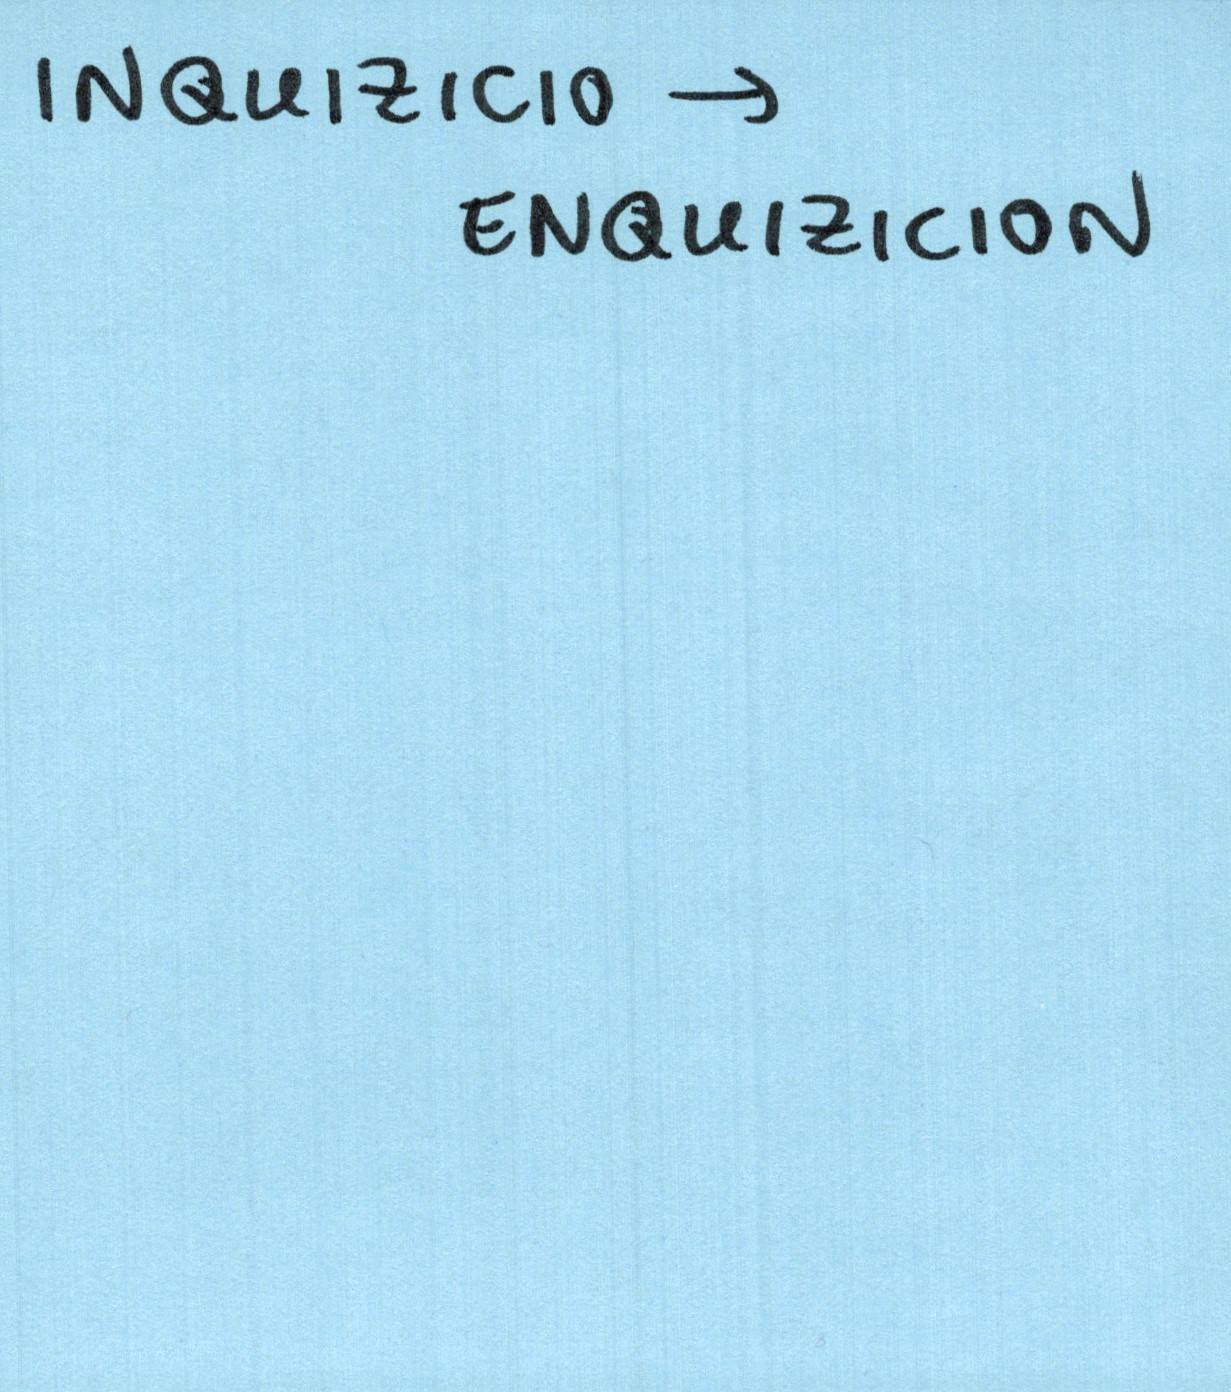 INQUIZICIO →
ENQUIZICION